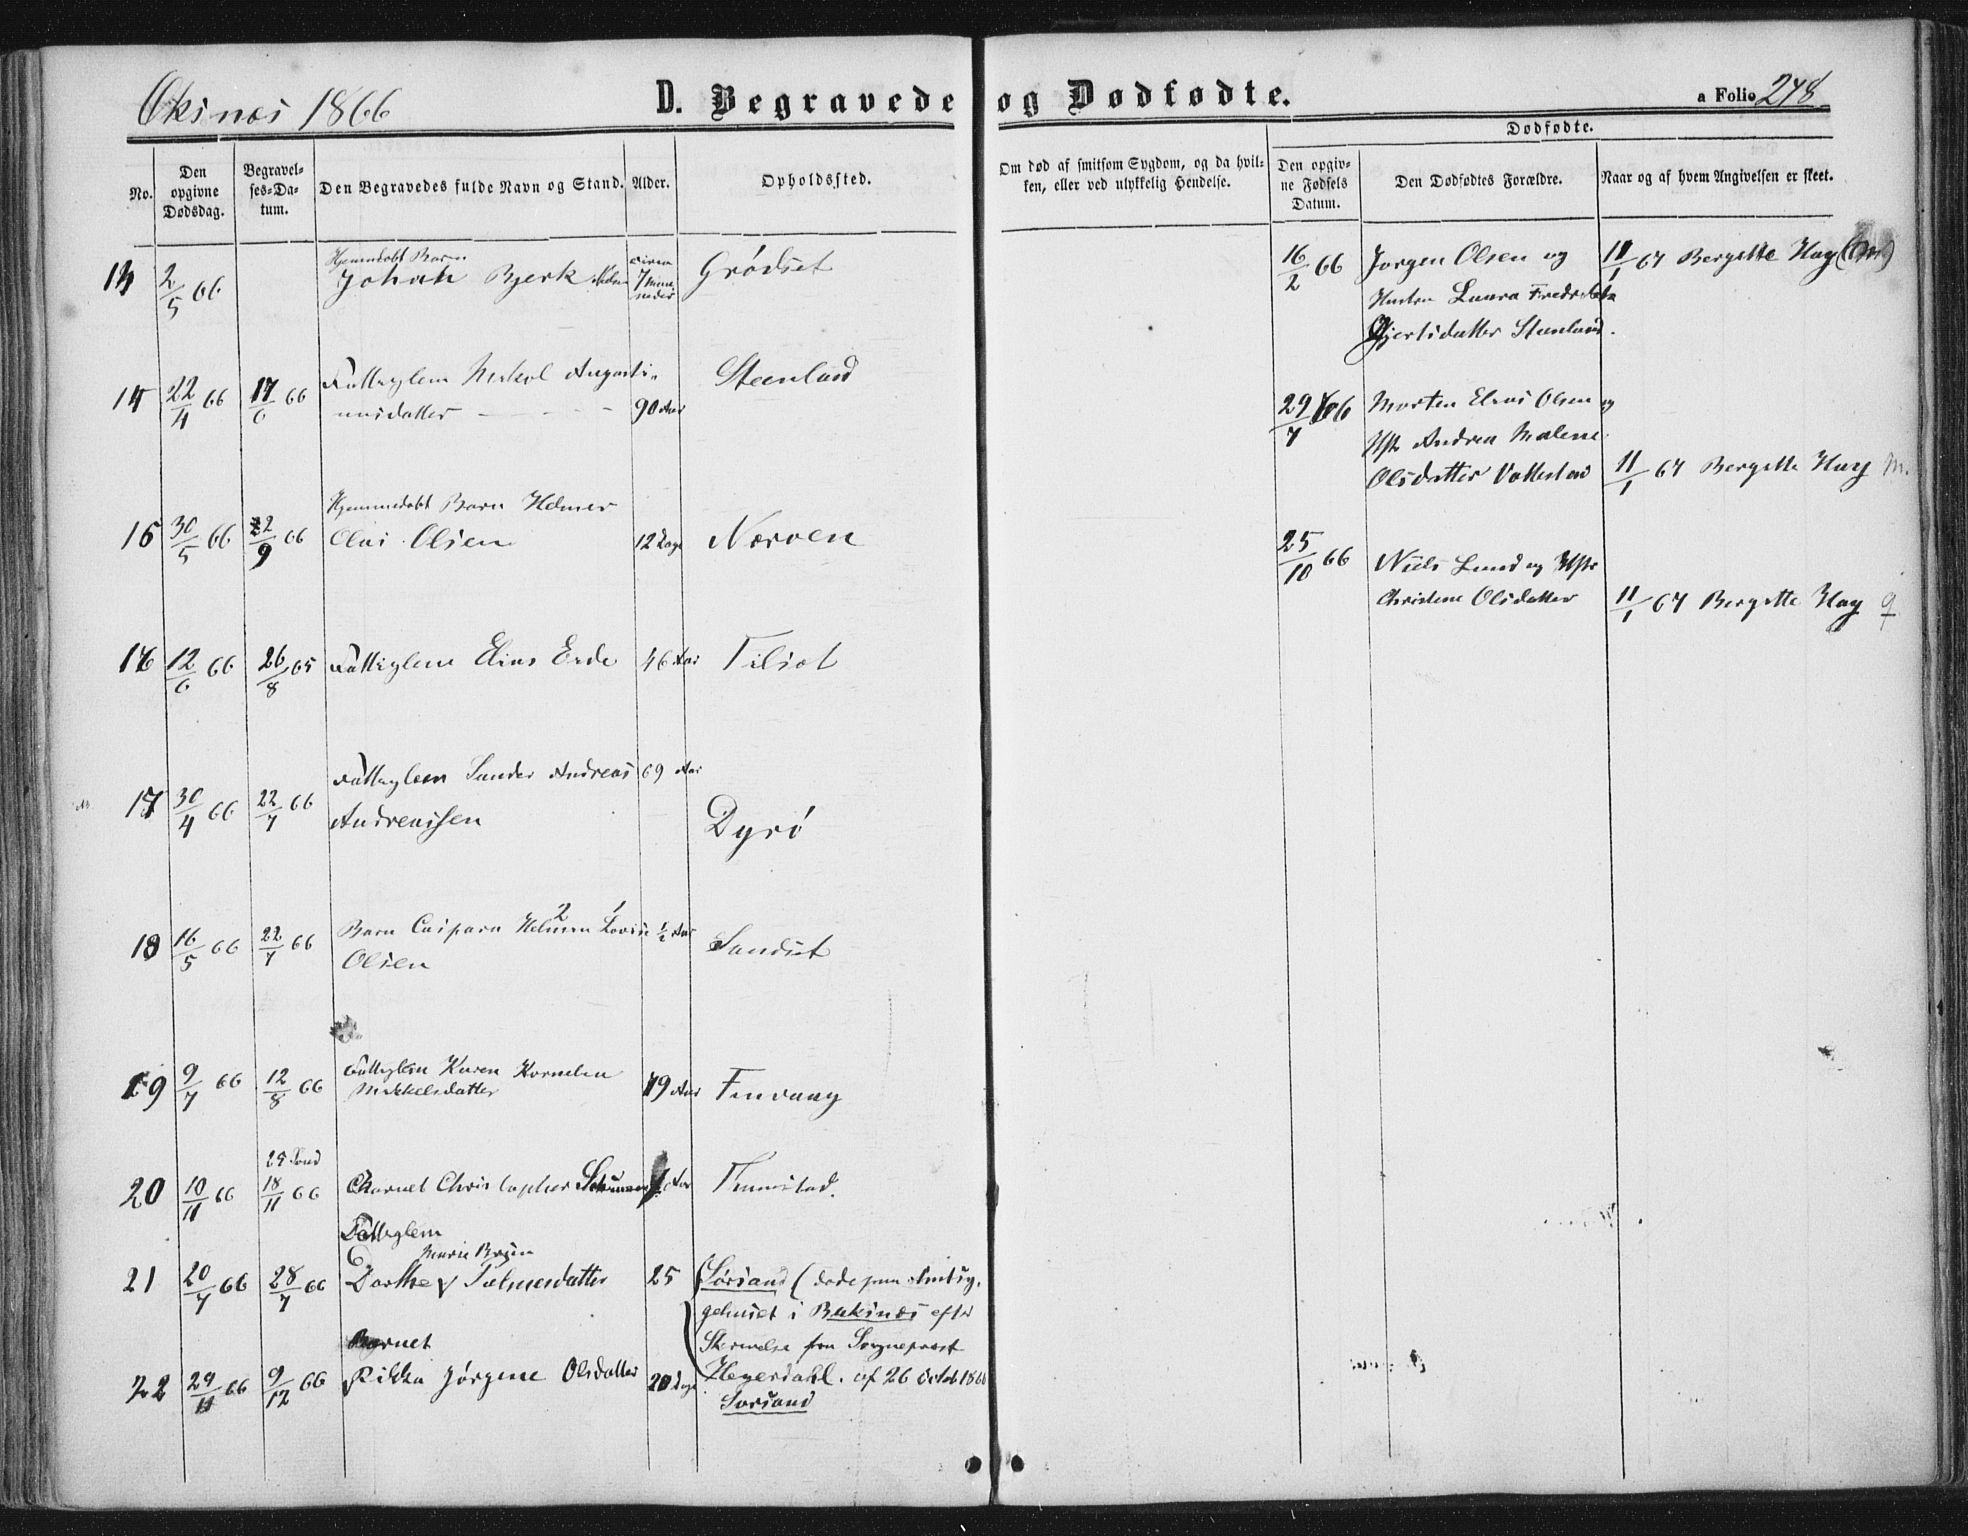 Øksnæs 1866
D. Begravede og Dødfødte.
a Folio 248
Dødfødte.
No.
Den opgivne Dødsdag.
Begravelses-Datum.
Den Begravedes fulde Navn og Stand.
Alder.
Opholdssted.
Om død af smitsom Sygdom, og da hvilken, eller ved ulykkelig Hendelse.
Den opgivne Fødsels Datum.
Den Dødfødtes Forældre.
Naar og af hvem Angivelsen er skeet.
Hjemmedøbt Barn
13 2/5 66 Johan Bjerk circa 7 Maaneder Grødset
14 22/4 66 17/6 66 Fattiglem Augusti-
nusdatter 90 Aar Steenland
Hjemmedøbt Barn Helmer
15 30/5 66 22/9 66 Olai Olsen 12 Dage Nærven
16 12/6 66 26/8 65 Fattiglem Elias Erde 46 Aar Tilsot
Fattiglem Sander Andreas 69 Aar
17 30/4 66 22/7 66 Andreassen Dyrø
2 1
18 16/5 66 22/7 66 Barn Caspara Helmine Lovise ½ Aar Sandset
Olsen
19 9/7 66 12/8 66 Fattiglem Karen Kornelia
Mikkelsdatter 79 Aar Finvaag
25 Sønd
20 10/11 66 18/11 66 Barnet Christopher Aar Tunstad.
Fattiglem
Marie Bryn
21 20/7 66 28/7 66 Dorthe Tølmersdatter 25 Sørsand (døde paa Amtsyg-
gehuset i Buksnæs efter
Skrivelse fra Sogneprest
Heyerdahl. af 26 Octob 1866
Barnet
22 29/11 66 9/12 66 Rikka Jørgine Olsdatter 20 Dage Sørsand
16/2 66 Jørgen Olsen og 11/1 67 Bergitte Hay (m)
Hustru Laura Fredrikke
Gjertsdatter Steenland.
29/7 66 Morten Elias Olsen og
Hstr Andrea Malene
Olsdatter Vottestad 11/1 67 Bergitte Hay m.
25/10 66 Niels Lund og Hstr
Christene Olsdatter 11/1 67 Bergitte Hay q